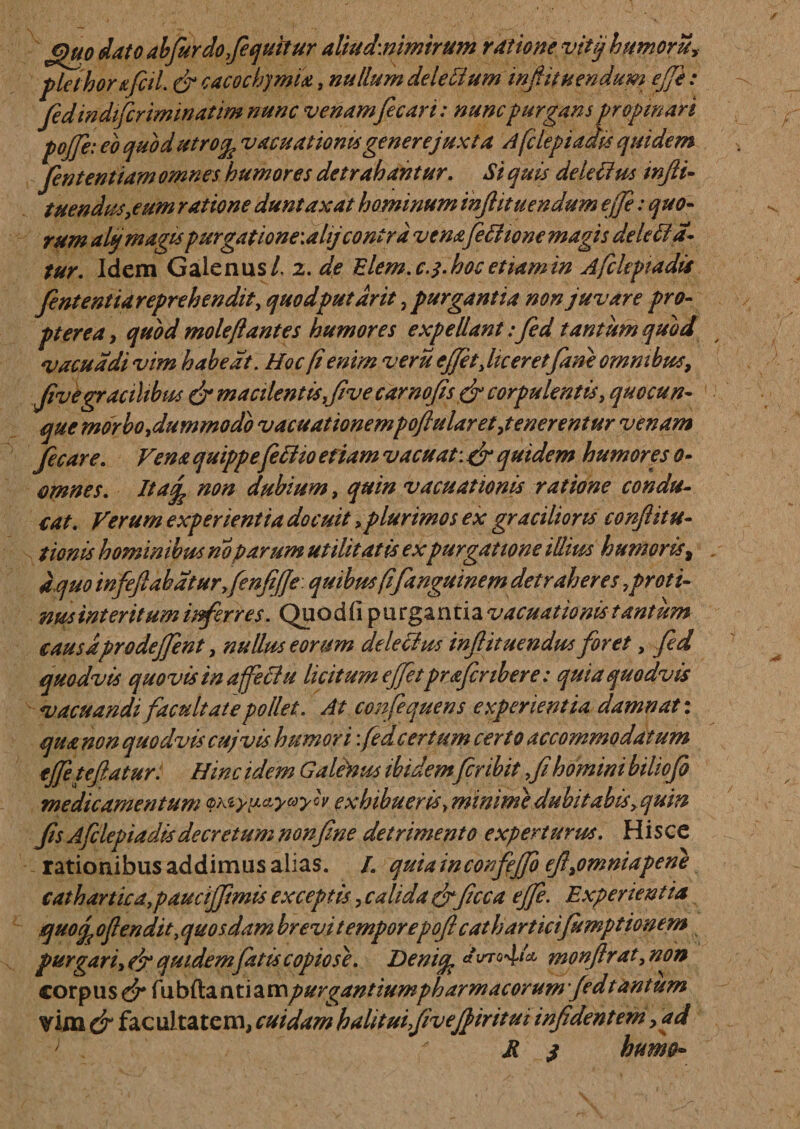 Quo dato absurdo, sequitur aliud: nimirum ratione vitij humorū,
plethoræ scil. & cacochymiæ, nullum delectum instituendum esse:
sed indiscriminatim nunc venam secari: nunc purgans propinari
posse: eò quòd utroq; vacuationis genere juxta Asclepiadis quidem
sententiam omnes humores detrahantur. Si quis delectus insti-
tuendus, eum ratione duntaxat hominum instituendum esse: quo-
rum alij magis purgatione: alij contrà venæ sectione magis delectā-
tur. Idem Galenus l. 2. de Elem. c. 3. hoc etiam in Asclepiadis
sententia reprehendit, quod putârit, purgantia non juvare pro-
pterea, quòd molestantes humores expellant: sed tantùm quòd
vacuādi vim habeāt. Hoc si enim verū esset, liceret sanè omnibus,
sive gracilibus & macilentis, sive carnosis & corpulentis, quocun-
que morbo, dummodò vacuationem postularet, tenerentur venam
secare. Venæ quippe sectio etiam vacuat: & quidem humores o-
omnes. Itaq; non dubium, quin vacuationis ratione condu-
cat. Verum experientia docuit, plurimos ex gracilioris constitu-
tionis hominibus nō parum utilitatis ex purgatione illius humoris,
à quo infestabātur, sensisse: quibus si sanguinem detraheres, proti-
nus interitum inferres. Quodsi purgantia vacuationis tantùm
causâ prodessent, nullus eorum delectus instituendus foret, sed
quodvis quovis in affectu licitum esset præscribere: quia quodvis
vacuandi facultate pollet. At consequens experientia damnat:
quæ non quodvis cujvis humori: sed certum certo accommodatum
esse testatur. Hinc idem Galenus ibidem scribit, si homini bilioso
medicamentum φλεγμαγωγὸν exhibueris, minimè dubitabis, quin
sis Asclepiadis decretum non sine detrimento experturus. Hisce
rationibus addimus alias. I. quia in confesso est, omnia penè
cathartica, paucissimis exceptis, calida & sicca esse. Experientia
quoq; ostendit, quosdam brevi tempore post cathartici sumptionem
purgari, & quidem satis copiosè. Deniq; αὐτοψία monstrat, non
corpus & substantiam purgantium pharmacorum: sed tantùm
vim & facultatem, cuidam halitui sive spiritui insidentem, ad
R 3 humo-